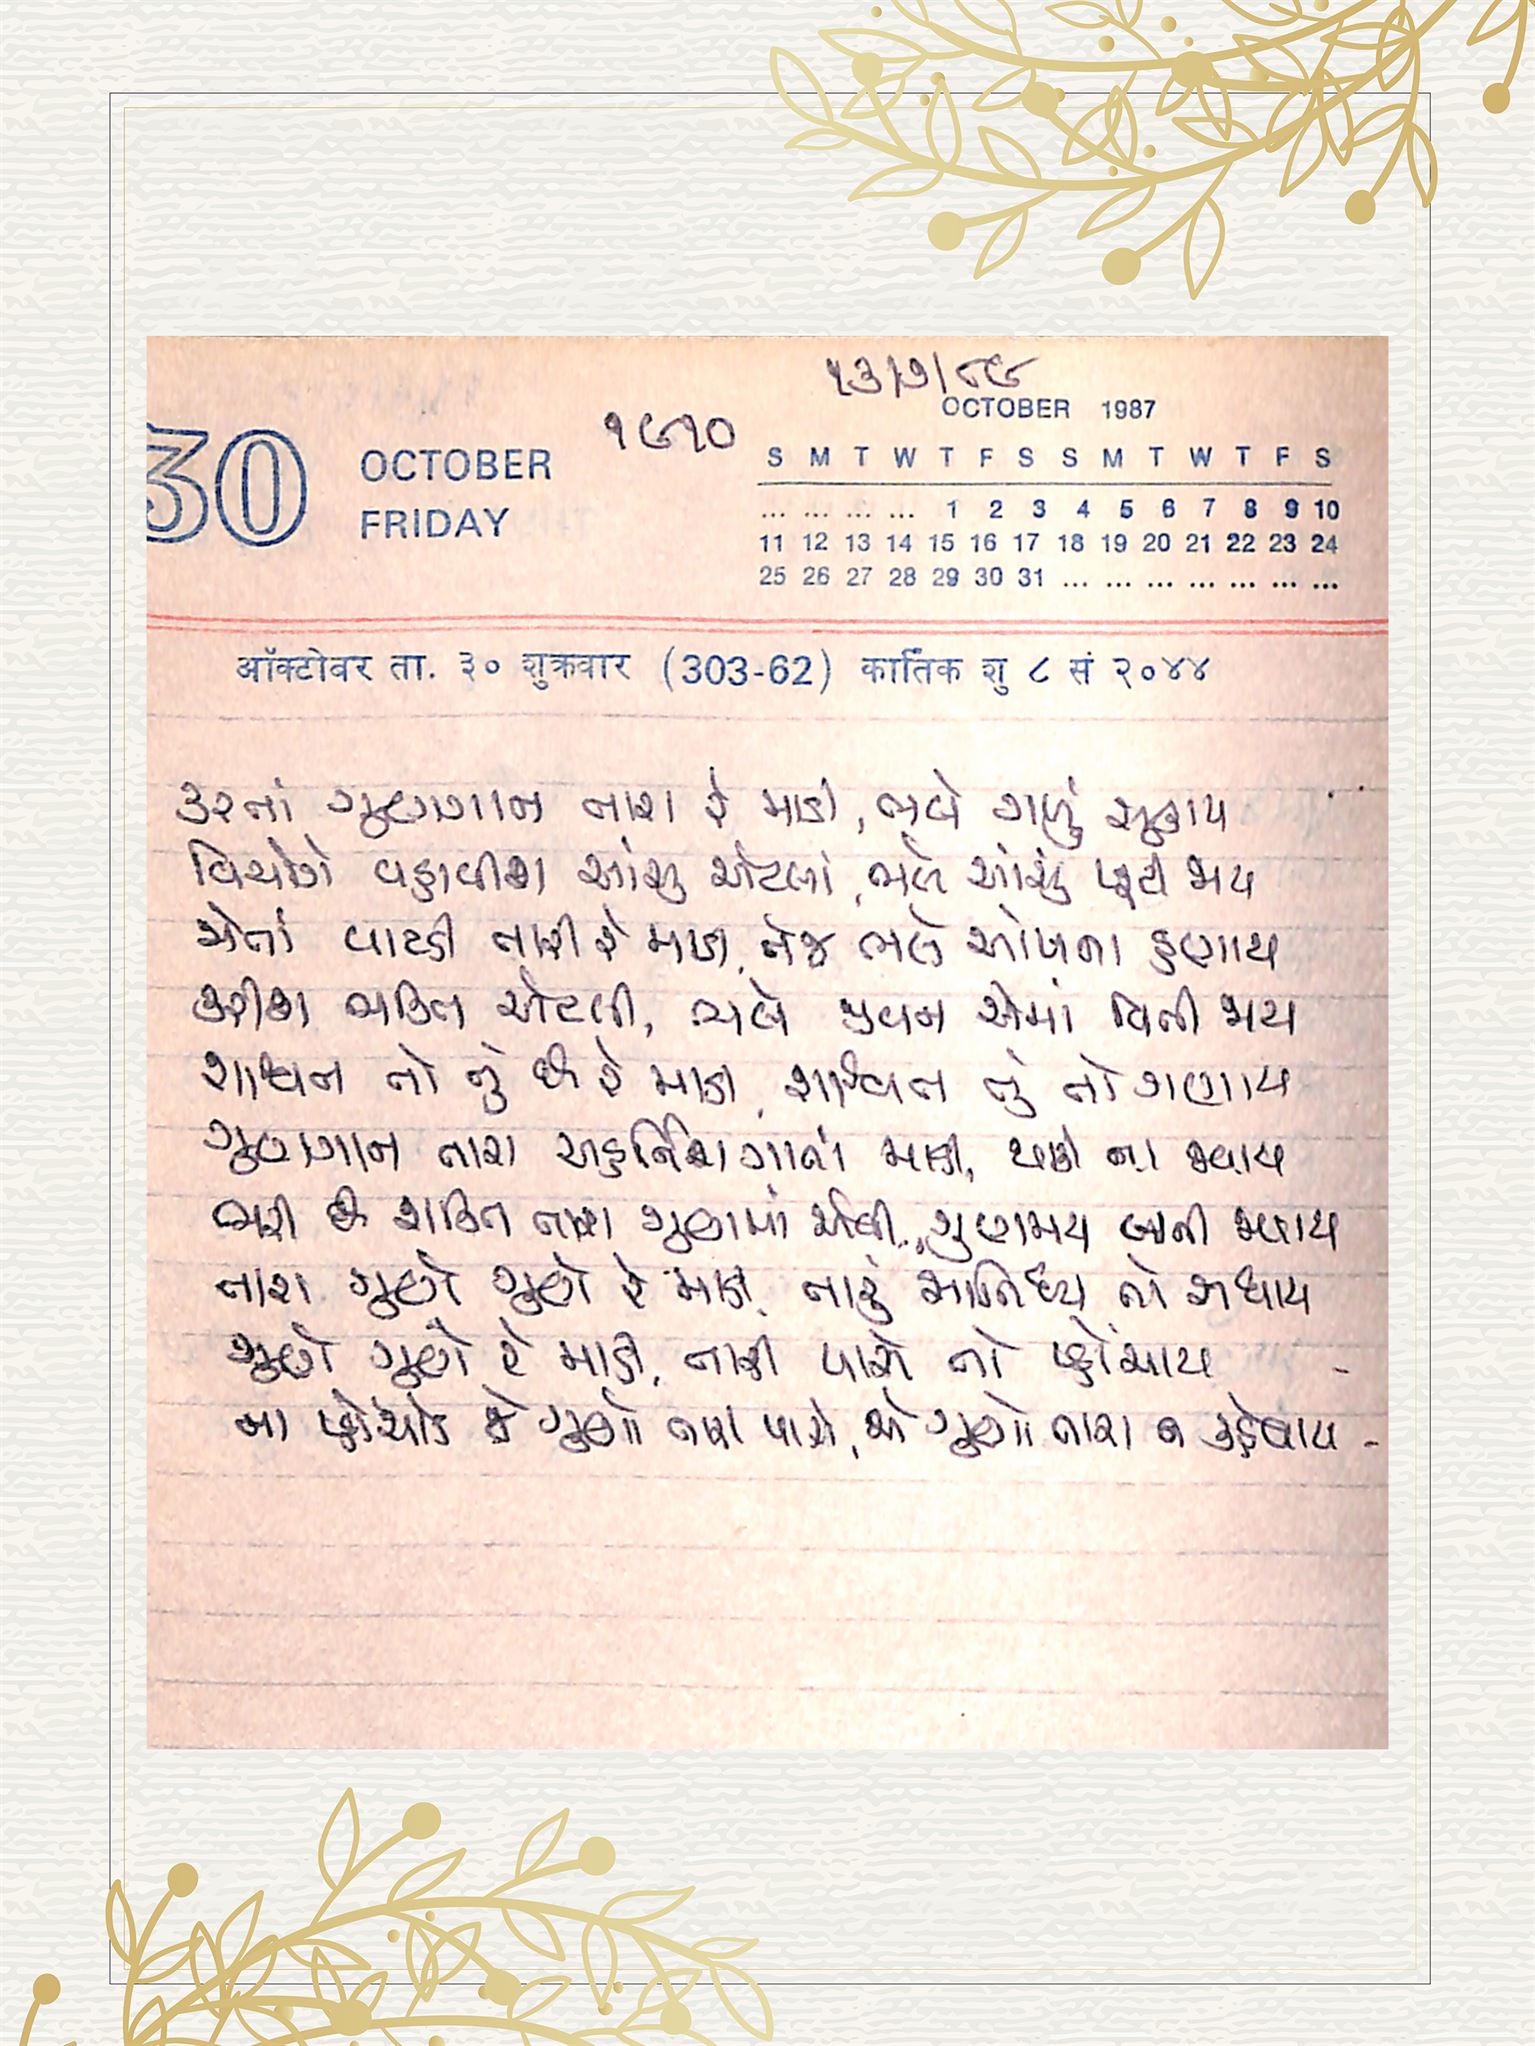 ૧૩/૭/૮૯
૧૯૧૦
OCTOBER 1987
30 OCTOBER
FRIDAY
S M T W T F S S M T W T F S
... ... ... ... 1 2 3 4 5 6 7 8 9 10
11 12 13 14 15 16 17 18 19 20 21 22 23 24
25 26 27 28 29 30 31 ... ... ... ... ... ... ...
ऑक्टोबर ता. ३० शुक्रवार (303-62) कार्तिक शु ८ सं २०४४
કરતાં ગુણગાન તારા રે માડી, ભલે ગળું સુકાય
વિયોગે વહાવીશ આંસુ એટલાં, ભલે આંસું ખૂટી જાય
જોતાં વાટડી તારી રે માડી, તેજ ભલે આંખના હણાય
કરીશ ભક્તિ એટલી, ભલે જીવન એમાં વિતી જાય
શાશ્વત તો તું છે રે માડી, શાશ્વત તું તો ગણાય
ગુણગાન તારા અહર્નિશ ગાતાં માડી, થાકો ના જરાય
ભરી છે શક્તિ તારા ગુણમાં એવી, ગુણમય બની જવાય
તારા ગુણે ગુણે રે માડી, તારું સાંનિધ્ય તો સધાય
ગુણે ગુણે રે માડી, તારી પાસે તો પ્હોંચાય
ના પ્હોંચાડે જે ગુણો તારી પાસે, એ ગુણો તારા ન કહેવાય